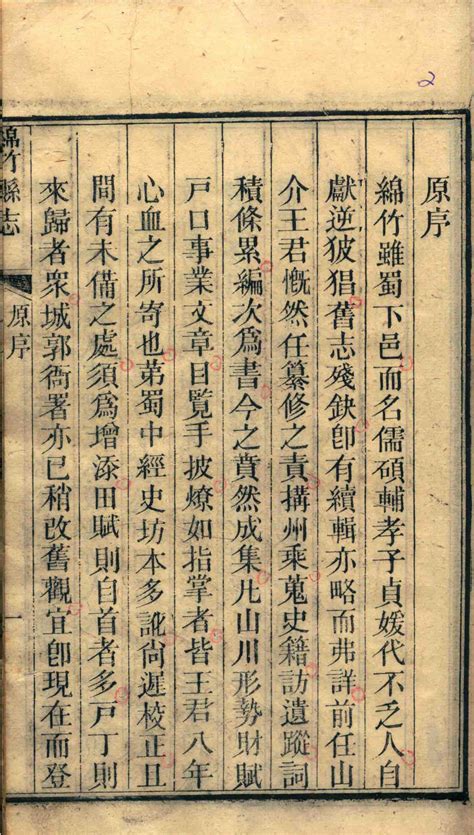 2
原序
綿竹雖蜀下邑而名儒碩輔孝子貞媛代不乏人自
獻逆披猖舊志殘缺卽有續輯亦略而弗詳前任山
介王君慨然任纂修之責搆州乘蒐史籍訪遺蹤詞
積條累編次爲書今之賁然成集凡山川形勢財賦
戸口事業文章目覽手披燎如指掌者皆王君八年
心血之所寄也苐蜀中經史坊本多訛尚遲校正且
間有未備之處須爲增添田賦則自首者多戸丁則
來歸者衆城郭衙署亦已稍改舊觀宜卽現在而登
綿竹縣志
原序
一